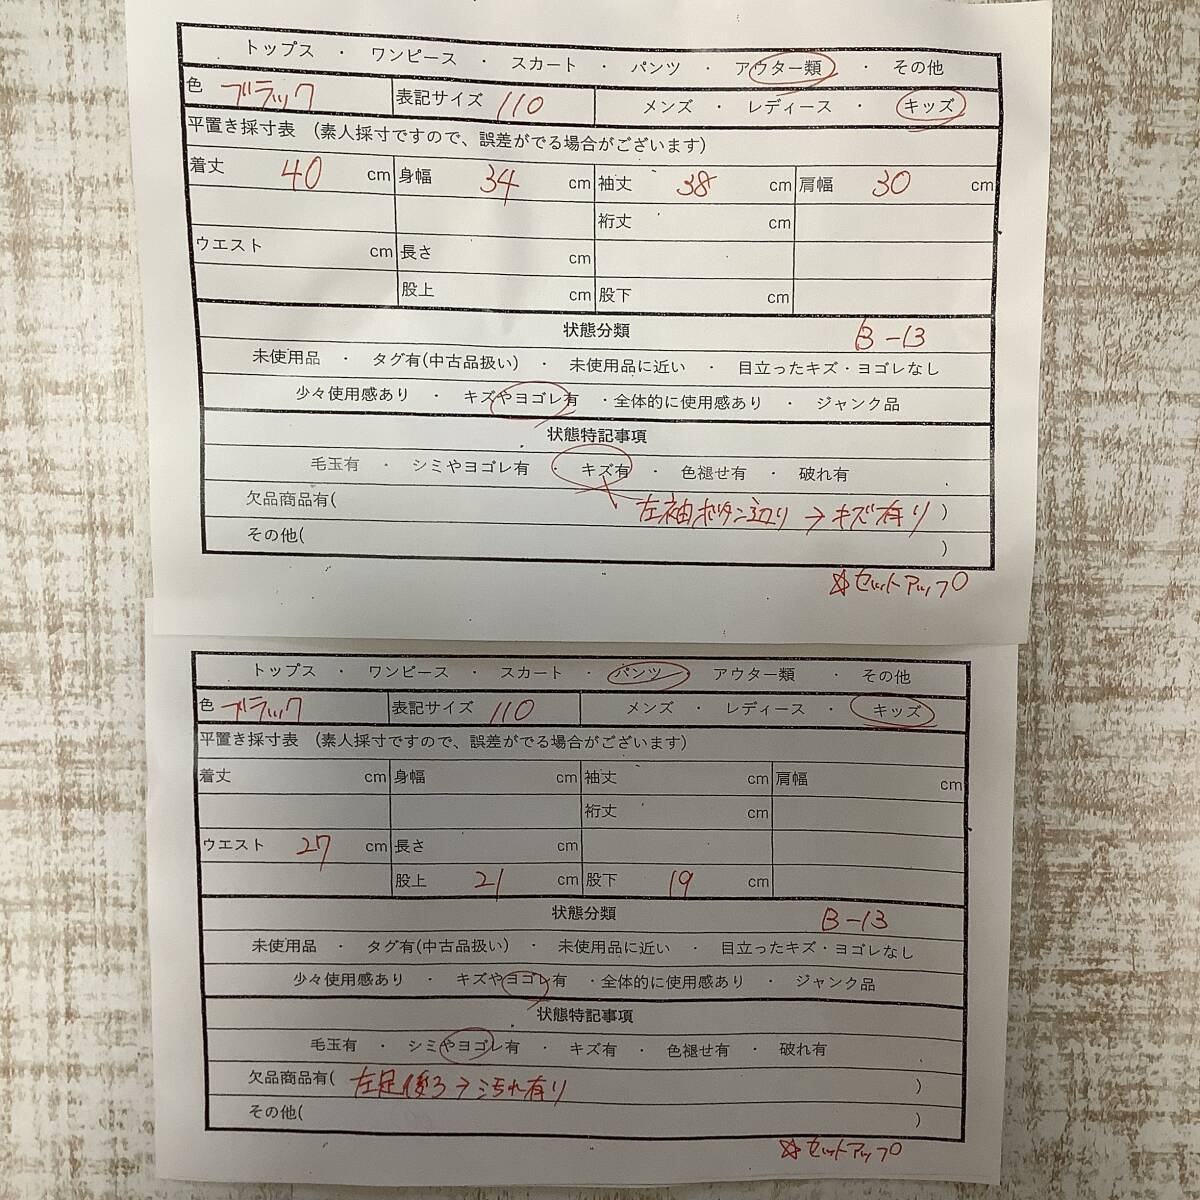 トップス ・ ワンピース ・ スカート ・ パンツ ・ アウター類 ・ その他
色 ブラック 表記サイズ 110 メンズ ・ レディース ・ キッズ
平置き採寸表 (素人採寸ですので、誤差がでる場合がございます)
着丈 40 cm 身幅 34 cm 袖丈 38 cm 肩幅 30 cm
裄丈 cm
ウエスト cm 長さ cm
股上 cm 股下 cm
状態分類 B-13
未使用品 ・ タグ有(中古品扱い) ・ 未使用品に近い ・ 目立ったキズ・ヨゴレなし
少々使用感あり ・ キズやヨゴレ有 ・全体的に使用感あり ・ ジャンク品
状態特記事項
毛玉有 ・ シミやヨゴレ有 ・ キズ有 ・ 色褪せ有 ・ 破れ有
欠品商品有( 左袖ボタン辺り→キズ有り )
その他( )
☆セットアップ
トップス ・ ワンピース ・ スカート ・ パンツ ・ アウター類 ・ その他
色 ブラック 表記サイズ 110 メンズ ・ レディース ・ キッズ
平置き採寸表 (素人採寸ですので、誤差がでる場合がございます)
着丈 cm 身幅 cm 袖丈 cm 肩幅 cm
裄丈 cm
ウエスト 27 cm 長さ cm
股上 21 cm 股下 19 cm
状態分類 B-13
未使用品 ・ タグ有(中古品扱い) ・ 未使用品に近い ・ 目立ったキズ・ヨゴレなし
少々使用感あり ・ キズやヨゴレ有 ・全体的に使用感あり ・ ジャンク品
状態特記事項
毛玉有 ・ シミやヨゴレ有 ・ キズ有 ・ 色褪せ有 ・ 破れ有
欠品商品有( 左足後ろ→汚れ有り )
その他( )
☆セットアップ